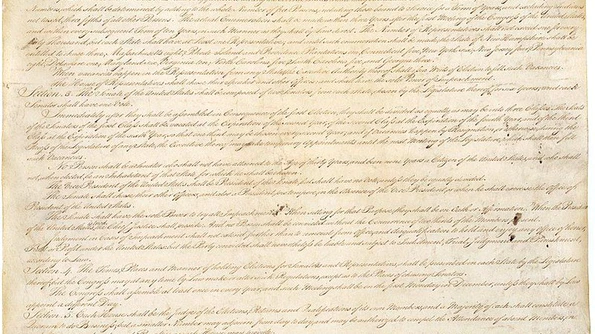 Numbers, which shall be determined by adding to the whole Number of free Persons, including those bound to Service for a Term of Years, and excluding Indians
not taxed, three fifths of all other Persons. The actual Enumeration shall be made within three Years after the first Meeting of the Congress of the United States,
and within every subsequent Term of ten Years, in such Manner as they shall by Law direct. The Number of Representatives shall not exceed one for every
thirty Thousand, but each State shall have at Least one Representative; and until such enumeration shall be made, the State of New Hampshire shall be
entitled to chuse three, Massachusetts eight, Rhode Island and Providence Plantations one, Connecticut five, New York six, New Jersey four, Pennsylvania
eight, Delaware one, Maryland six, Virginia ten, North Carolina five, South Carolina five, and Georgia three.
When vacancies happen in the Representation from any State, the Executive Authority thereof shall issue Writs of Election to fill such Vacancies.
The House of Representatives shall chuse their Speaker and other Officers; and shall have the sole Power of Impeachment.
Section. 3. The Senate of the United States shall be composed of two Senators from each State, chosen by the Legislature thereof, for six Years; and each
Senator shall have one Vote.
Immediately after they shall be assembled in Consequence of the first Election, they shall be divided as equally as may be into three Classes. The Seats
of the Senators of the first Class shall be vacated at the Expiration of the second Year, of the second Class at the Expiration of the fourth Year, and of the third
Class at the Expiration of the sixth Year, so that one third may be chosen every second Year; and if Vacancies happen by Resignation, or otherwise, during the
Recess of the Legislature of any State, the Executive thereof may make temporary Appointments until the next Meeting of the Legislature, which shall then fill
such Vacancies.
No Person shall be a Senator who shall not have attained to the Age of thirty Years, and been nine Years a Citizen of the United States, and who shall
not, when elected, be an Inhabitant of that State for which he shall be chosen.
The Vice President of the United States shall be President of the Senate, but shall have no Vote, unless they be equally divided.
The Senate shall chuse their other Officers, and also a President pro tempore, in the Absence of the Vice President, or when he shall exercise the Office of
President of the United States.
The Senate shall have the sole Power to try all Impeachments. When sitting for that Purpose, they shall be on Oath or Affirmation. When the President
of the United States the Chief Justice shall preside: And no Person shall be convicted without the Concurrence of two thirds of the Members present.
Judgment in Cases of Impeachment shall not extend further than to removal from Office, and disqualification to hold and enjoy any Office of honor,
Trust or Profit under the United States: but the Party convicted shall nevertheless be liable and subject to Indictment, Trial, Judgment and Punishment,
according to Law.
Section. 4. The Times, Places and Manner of holding Elections for Senators and Representatives, shall be prescribed in each State by the Legislature
thereof; but the Congress may at any time by Law make or alter such Regulations, except as to the Places of chusing Senators.
The Congress shall assemble at least once in every Year, and such Meeting shall be on the first Monday in December, unless they shall by Law
appoint a different Day.
Section. 5. Each House shall be the Judge of the Elections, Returns and Qualifications of its own Members, and a Majority of each shall constitute a
Quorum to do Business; but a smaller Number may adjourn from day to day, and may be authorized to compel the Attendance of absent Members, in